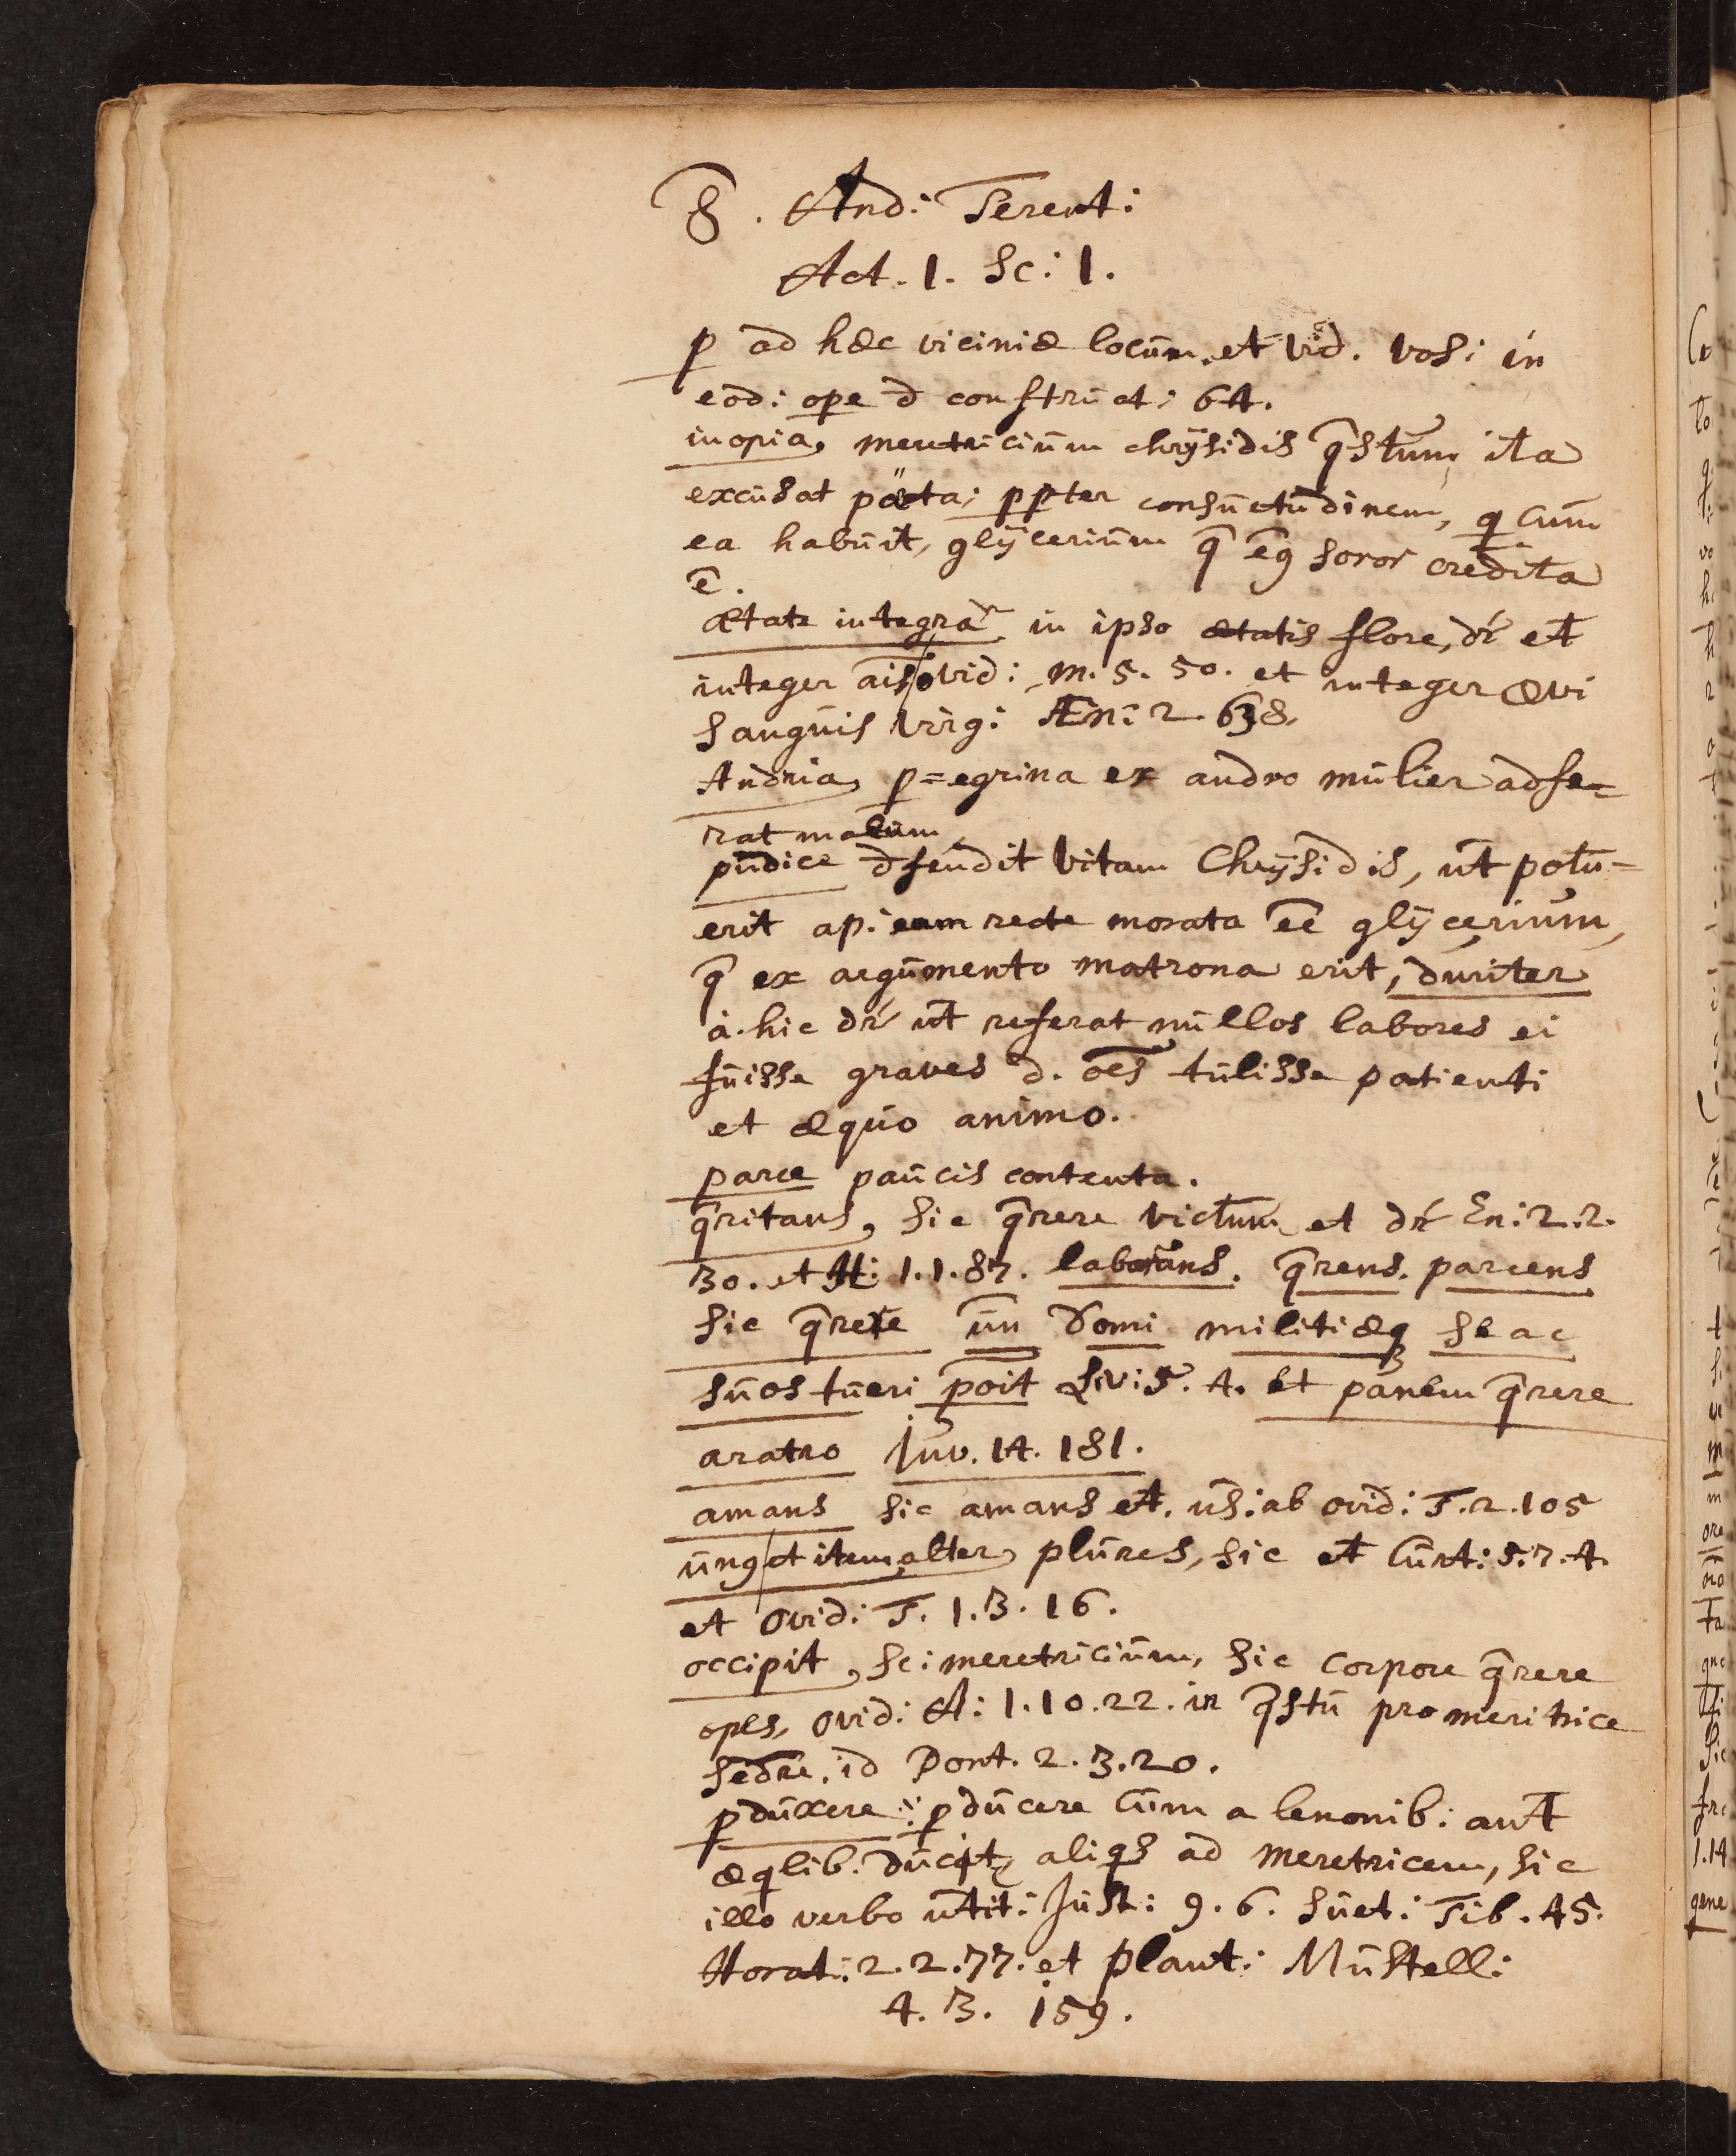 8. And: Terent:
Act. 1. Sc: 1.
p ad hæc viciniæ locum. et vid. vos: in
eod: ope d construct: 64.
inopia, meretricium chrÿsidis q̄stum ita
excusat pöeta; ppter consuetudinem, q cum
ea habuit, glÿcerium q̄ ej9 soror credita
ē.
ætate integra in ipso ætatis flore, dr̄ et
integer ais ovid: M. 5. 50. et integer ævi
sanguis Virg: Æn: 2. 638.
Andria, p=egrina ex andro mulier adfe=
rat malum
pudice dfendit vitam Chrÿsidis, ut potu=
erit ap: eam recte morata ēē glÿcerium,
q̄ ex argumento matrona erit, duriter
a. hic dr̄ ut referat nullos labores ei
fuisse graves d. oēs tulisse patienti
et æquo animo.
parce paucis contenta.
q̄ritans, sic q̄rere victum et dr̄ En: 2. 2.
30. et H: 1. 1. 87. laborans. q̄rens. parcens
sic q̄rere un domi militiæq se ac
suos tueri poit Liv: 5. 4. et panem q̄rere
aratro Juv. 14. 181.
amans sic amans et. us: ab ovid: T. 2. 105
un9 et item alter, plures, sic et Curt: 5. 7. 4.
et Ovid: T. 1. 3. 16.
occipit, sc: meretricium, sic corpore q̄rere
opes, ovid: A: 1. 10. 22. in q̄stu pro meritrice
sedre. id Pont. 2. 3. 20.
pduxere : pducere cum a lenonib: aut
æqlib: ducit aliqs ad meretricem, sic
illo verbo utit: Just: 9. 6. Suet: Tib. 45.
Horat: 2. 2. 77. et Plaut: Mustell:
4. 3. 159.